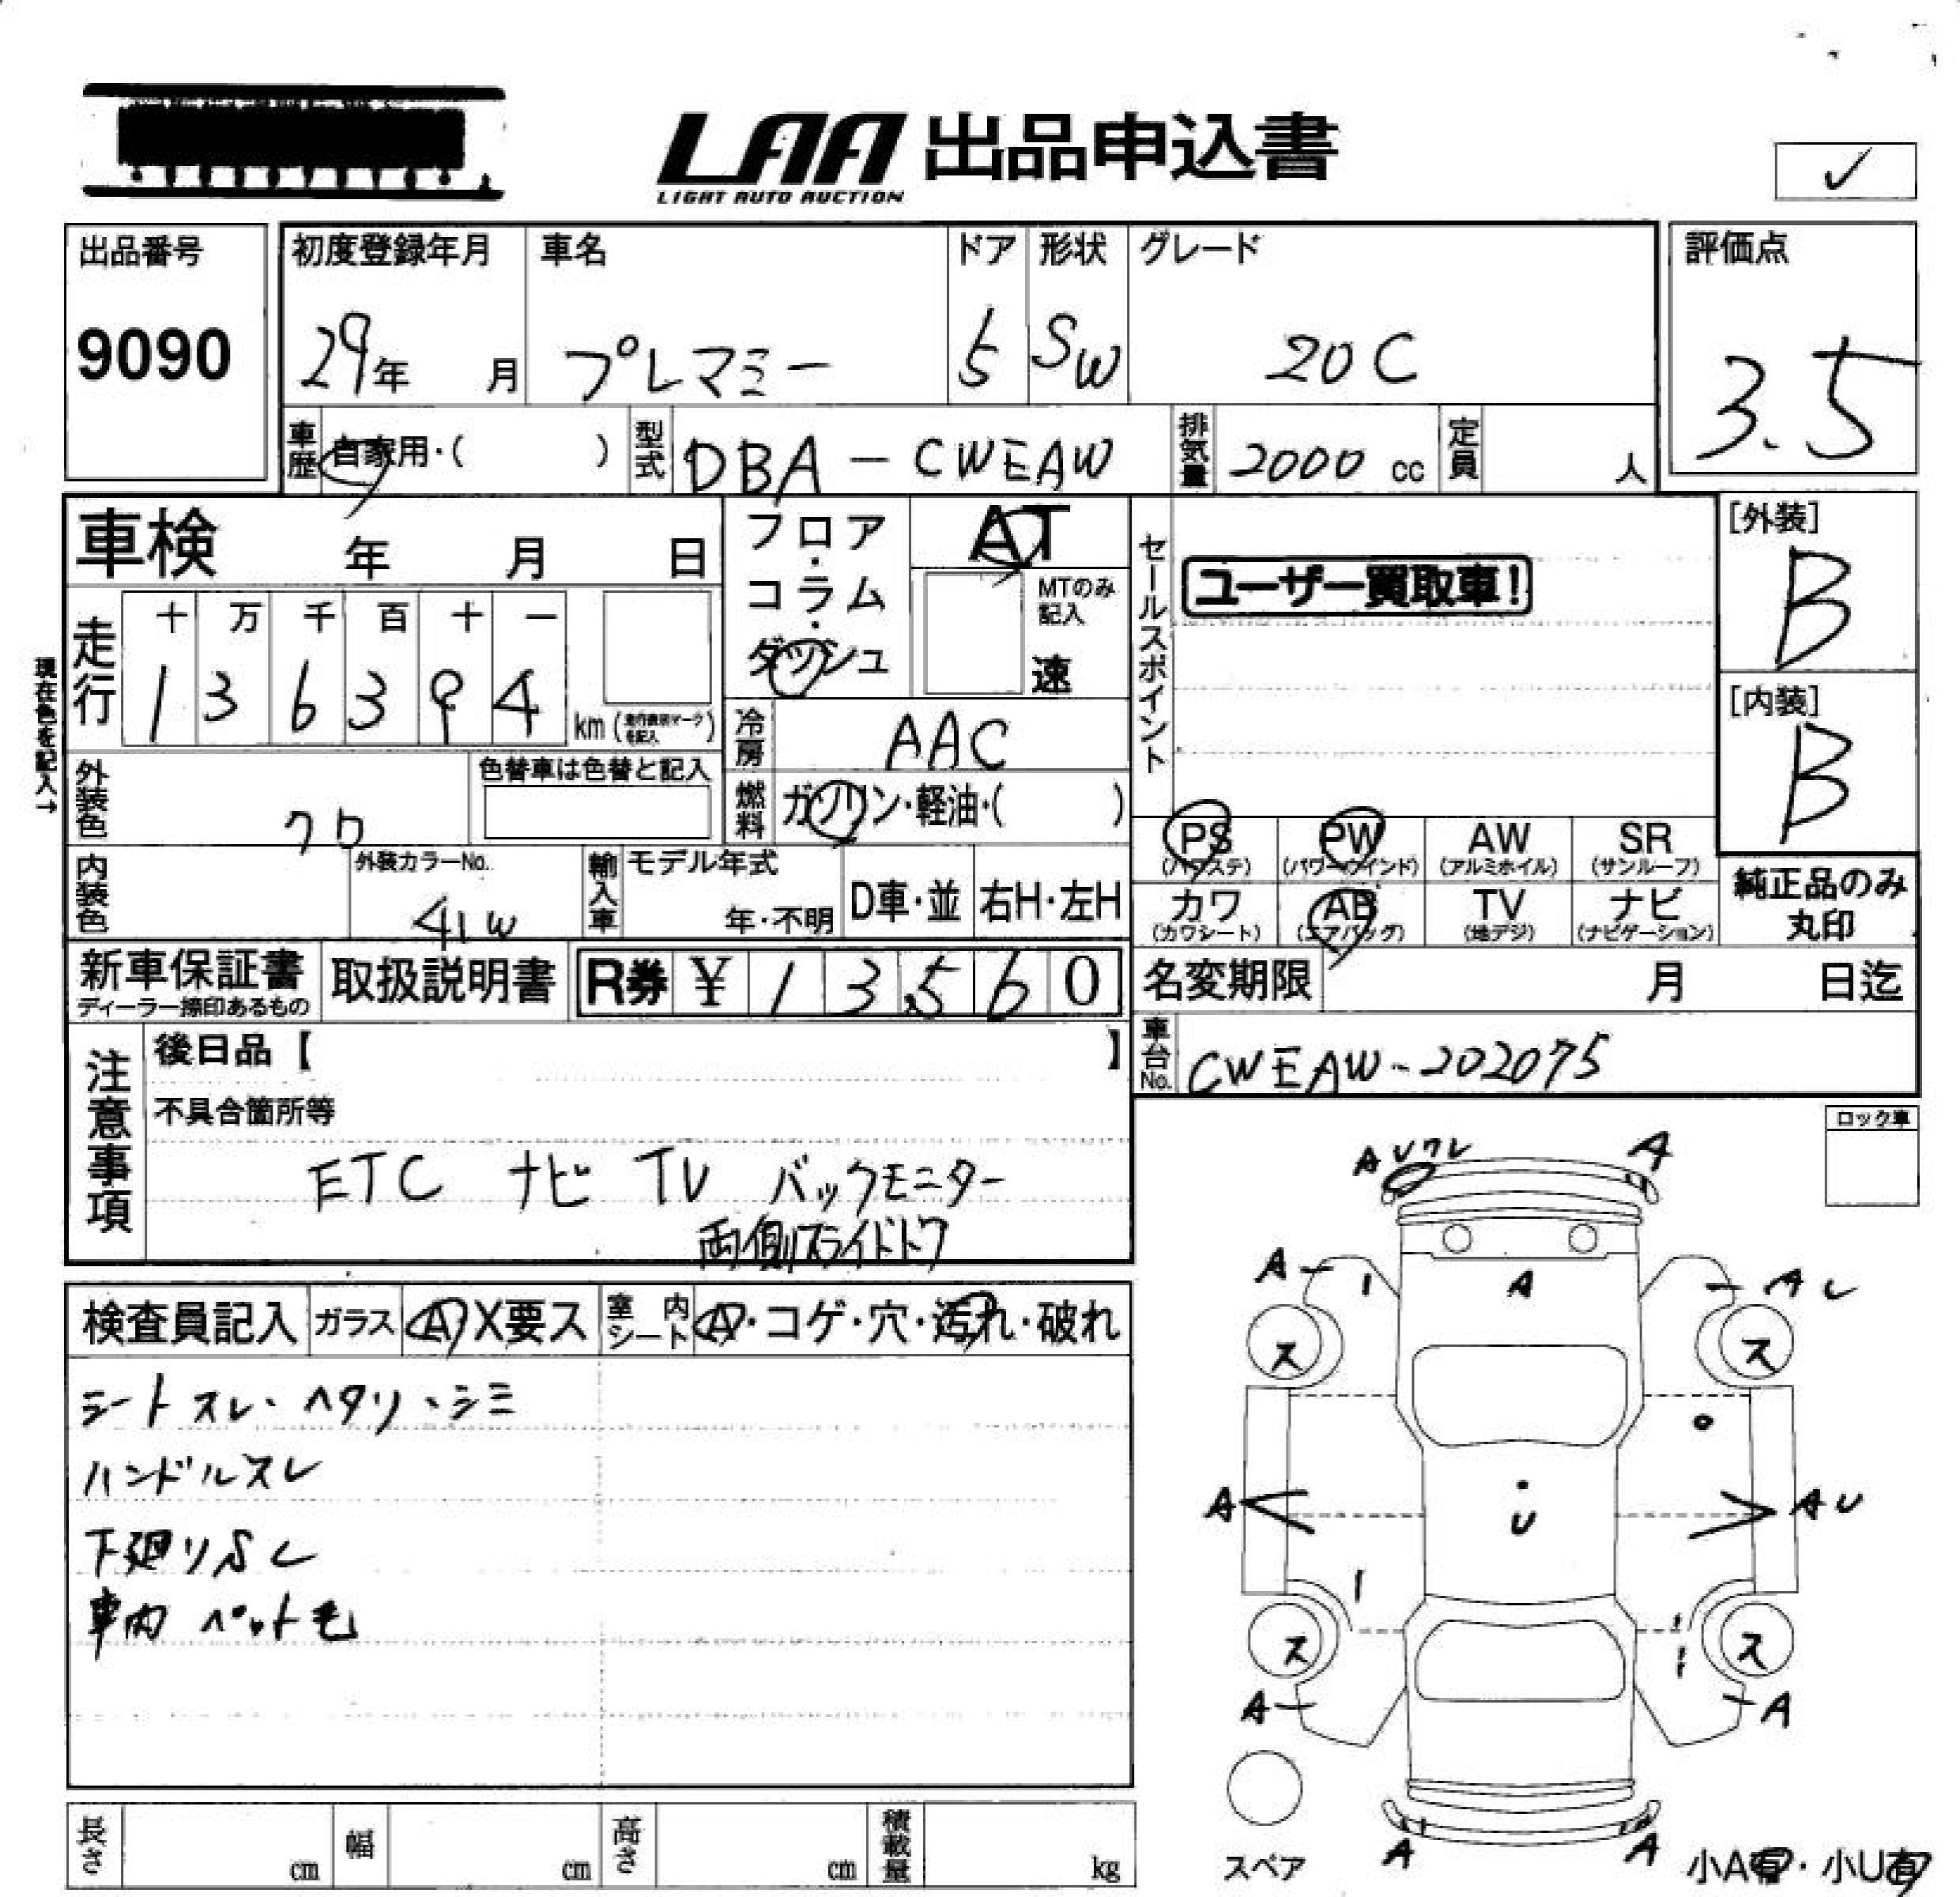 LAA 出品申込書
LIGHT AUTO AUCTION
✓
出品番号 初度登録年月 車名 ドア 形状 グレード 評価点
9090 29年 月 プレマミー 5 SW 20C 3.5
車歴 自家用・( ) 型式 DBA-CWEAW 排気量 2000 cc 定員 人
車検 年 月 日
フロア・コラム・ダッシュ
AT
MTのみ記入
速
セールスポイント
ユーザー買取車!
[外装]
B
[内装]
B
現在色を記入→
走行 十 万 千 百 十 一
1 3 6 3 9 4 km
冷房 AAC
外装色 クロ 色替車は色替と記入
燃料 ガソリン・軽油・( )
PS PW AW SR
(パワステ) (パワーウインド) (アルミホイル) (サンルーフ)
カワ AB TV ナビ
(カワシート) (エアバッグ) (地デジ) (ナビゲーション)
純正品のみ
丸印
内装色 外装カラーNo. 41W 輸入車 モデル年式 年・不明 D車・並 右H・左H
新車保証書 取扱説明書 R券 ¥ 1 3 5 6 0
ディーラー捺印あるもの
名変期限 月 日迄
車台No. CWEAW-202075
注意事項
後日品【 】
不具合箇所等
ETC ナビ TV バックモニター
両側スライドドア
ロック車
検査員記入 ガラス A X要ス 室内シート A・コゲ・穴・汚れ・破れ
シートスレ・ヘタリ・シミ
ハンドルスレ
下廻りSC
車内 ペット毛
A U ワレ A
A A A U
ス ス
A U A U
ス ス
A A
A A
スペア
小A有・小U有
長さ cm 幅 cm 高さ cm 積載量 kg